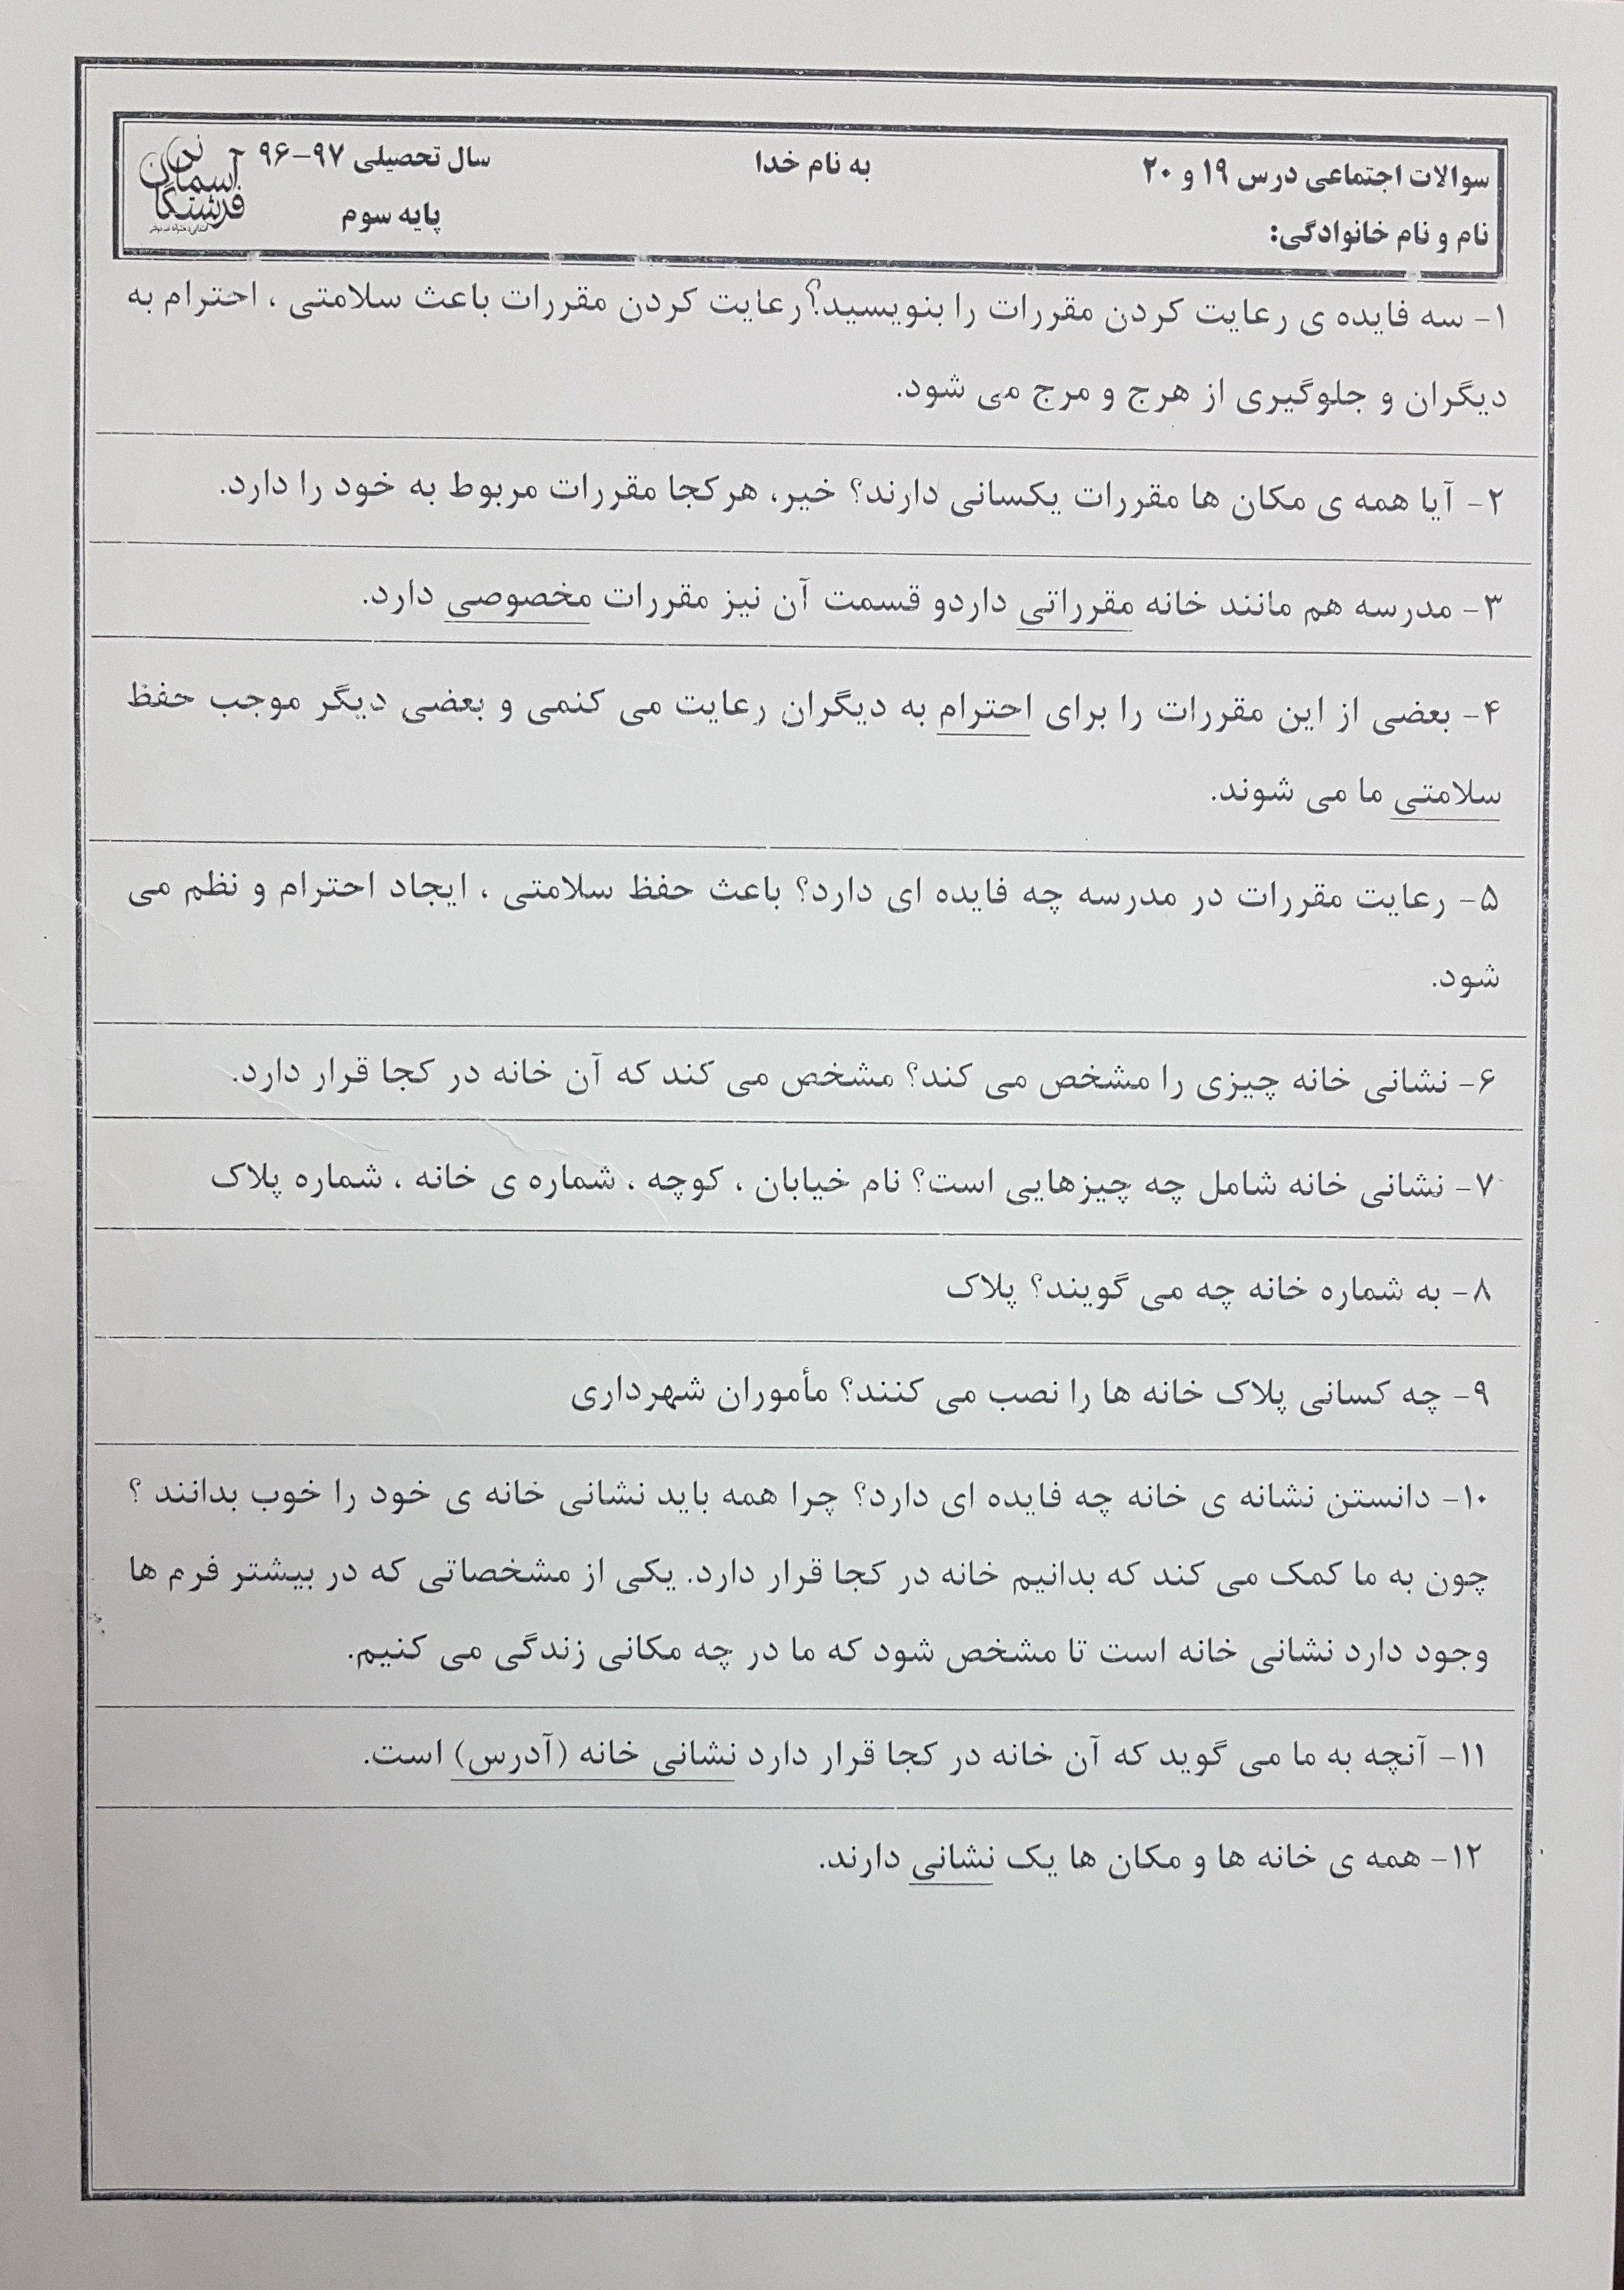 سوالات اجتماعی درس ۱۹ و ۲۰
نام و نام خانوادگی:
به نام خدا
سال تحصیلی ۹۷-۹۶
پایه سوم
فرشتگان
آسمان
۱- سه فایده ی رعایت کردن مقررات را بنویسید؟ رعایت کردن مقررات باعث سلامتی ، احترام به
دیگران و جلوگیری از هرج و مرج می شود.
۲- آیا همه ی مکان ها مقررات یکسانی دارند؟ خیر، هرکجا مقررات مربوط به خود را دارد.
۳- مدرسه هم مانند خانه مقرراتی داردو قسمت آن نیز مقررات مخصوصی دارد.
۴- بعضی از این مقررات را برای احترام به دیگران رعایت می کنمی و بعضی دیگر موجب حفظ
سلامتی ما می شوند.
۵- رعایت مقررات در مدرسه چه فایده ای دارد؟ باعث حفظ سلامتی ، ایجاد احترام و نظم می
شود.
۶- نشانی خانه چیزی را مشخص می کند؟ مشخص می کند که آن خانه در کجا قرار دارد.
۷- نشانی خانه شامل چه چیزهایی است؟ نام خیابان ، کوچه ، شماره ی خانه ، شماره پلاک
۸- به شماره خانه چه می گویند؟ پلاک
۹- چه کسانی پلاک خانه ها را نصب می کنند؟ مأموران شهرداری
۱۰- دانستن نشانه ی خانه چه فایده ای دارد؟ چرا همه باید نشانی خانه ی خود را خوب بدانند ؟
چون به ما کمک می کند که بدانیم خانه در کجا قرار دارد. یکی از مشخصاتی که در بیشتر فرم ها
وجود دارد نشانی خانه است تا مشخص شود که ما در چه مکانی زندگی می کنیم.
۱۱- آنچه به ما می گوید که آن خانه در کجا قرار دارد نشانی خانه (آدرس) است.
۱۲- همه ی خانه ها و مکان ها یک نشانی دارند.